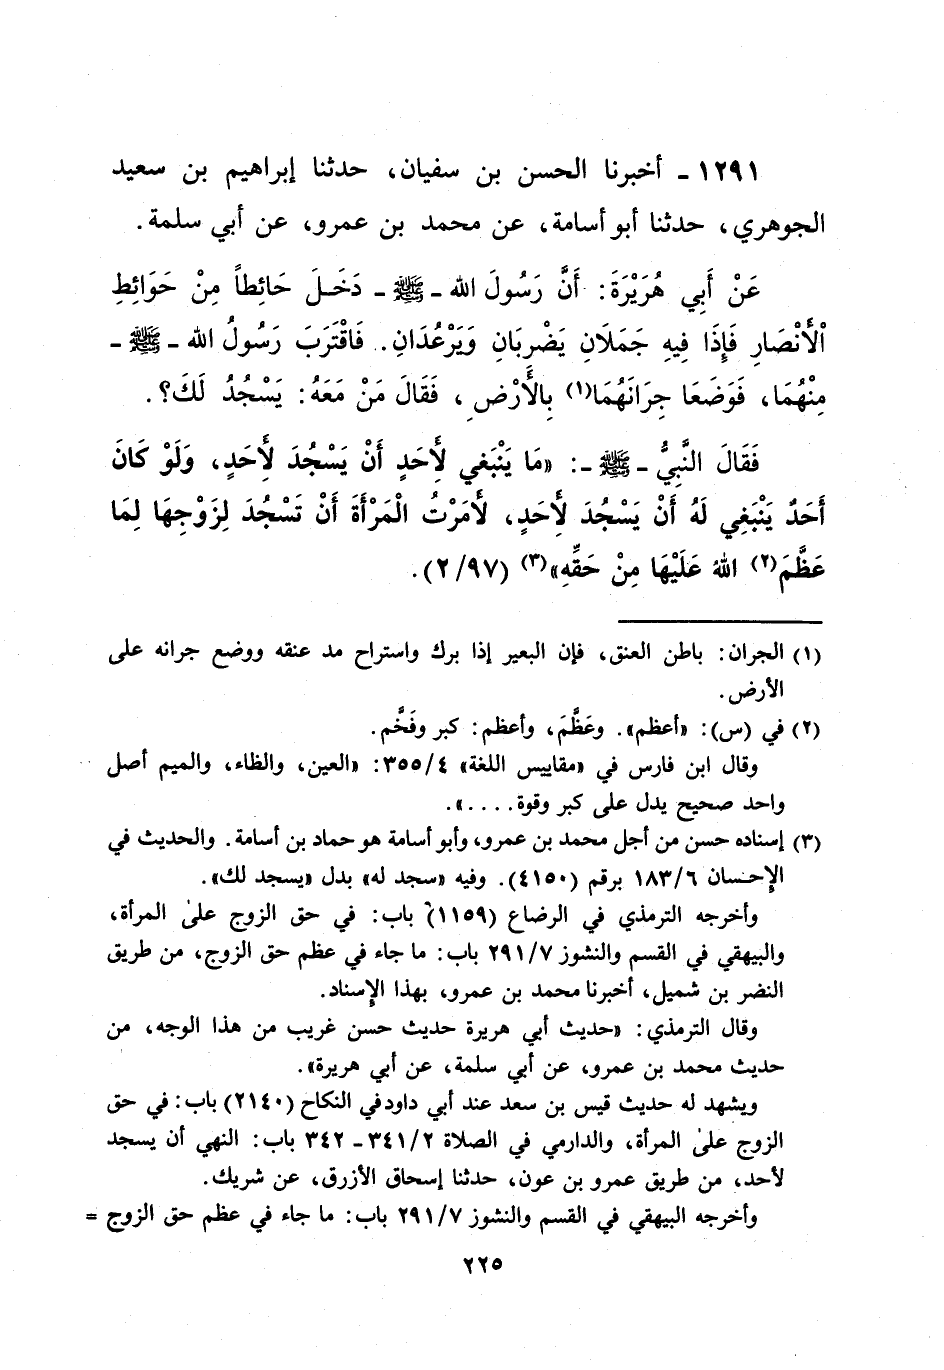 ١٢٩١ - أخبرنا الحسن بن سفيان، حدثنا إبراهيم بن سعيد
الجوهري، حدثنا أبو أسامة، عن محمد بن عمرو، عن أبي سلمة.
عَنْ أَبِي هُرَيْرَةَ: أَنَّ رَسُولَ الله - ﷺ - دَخَلَ حَائِطاً مِنْ حَوَائِطِ
الْأَنْصَارِ فَإِذَا فِيهِ جَمَلَانِ يَضْرِبَانِ وَيَرْعُدَانِ. فَاقْتَرَبَ رَسُولُ الله - ﷺ -
مِنْهُمَا، فَوَضَعَا جِرَانَهُمَا(١) بِالأَرْضِ، فَقَالَ مَنْ مَعَهُ: يَسْجُدُ لَكَ؟.
فَقَالَ النَّبِيُّ - ﷺ -: «مَا يَنْبَغِي لِأَحَدٍ أَنْ يَسْجُدَ لِأَحَدٍ، وَلَوْ كَانَ
أَحَدٌ يَنْبَغِي لَهُ أَنْ يَسْجُدَ لِأَحَدٍ، لَأَمَرْتُ الْمَرْأَةَ أَنْ تَسْجُدَ لِزَوْجِهَا لِمَا
عَظَّمَ(٢) اللهُ عَلَيْهَا مِنْ حَقِّهِ»(٣) (٢/٩٧).
(١) الجران: باطن العنق، فإن البعير إذا برك واستراح مد عنقه ووضع جرانه على
الأرض.
(٢) في (س): «أعظم». وعَظَّمَ، وأعظم: كبر وفَخَّم.
وقال ابن فارس في «مقاييس اللغة» ٣٥٥/٤: «العين، والظاء، والميم أصل
واحد صحيح يدل على كبر وقوة....».
(٣) إسناده حسن من أجل محمد بن عمرو، وأبو أسامة هو حماد بن أسامة. والحديث في
الإحسان ١٨٣/٦ برقم (٤١٥٠). وفيه «سجد له» بدل «يسجد لك».
وأخرجه الترمذي في الرضاع (١١٥٩) باب: في حق الزوج على المرأة،
والبيهقي في القسم والنشوز ٢٩١/٧ باب: ما جاء في عظم حق الزوج، من طريق
النضر بن شميل، أخبرنا محمد بن عمرو، بهذا الإسناد.
وقال الترمذي: «حديث أبي هريرة حديث حسن غريب من هذا الوجه، من
حديث محمد بن عمرو، عن أبي سلمة، عن أبي هريرة».
ويشهد له حديث قيس بن سعد عند أبي داود في النكاح (٢١٤٠) باب: في حق
الزوج على المرأة، والدارمي في الصلاة ٣٤١/٢ - ٣٤٢ باب: النهي أن يسجد
لأحد، من طريق عمرو بن عون، حدثنا إسحاق الأزرق، عن شريك.
وأخرجه البيهقي في القسم والنشوز ٢٩١/٧ باب: ما جاء في عظم حق الزوج =
٢٢٥